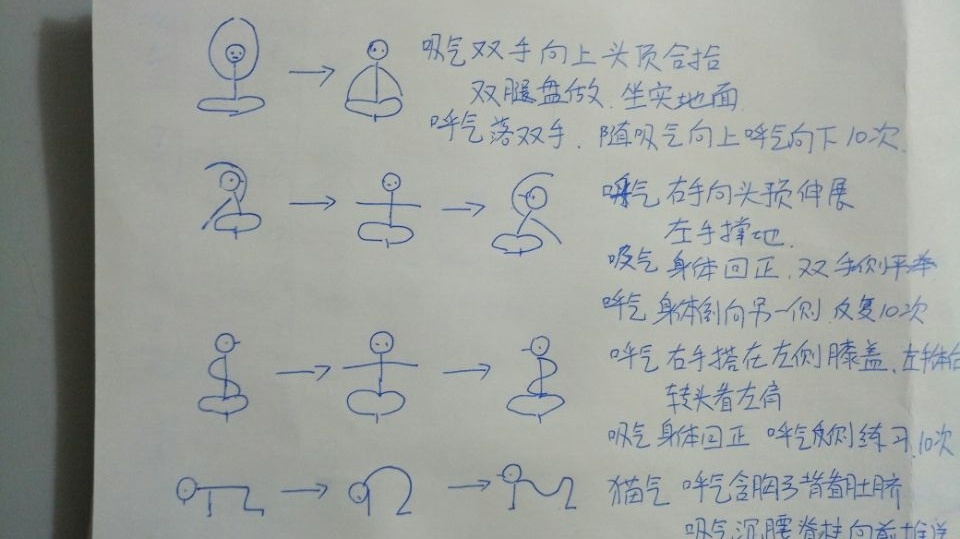 吸气双手向上头顶合拾
双腿盘做.坐实地面
呼气落双手.随吸气向上呼气向下10次.
呼气 右手向头顶伸展
左手撑地.
吸气 身体回正.双手侧平举
呼气 身体倒向另一侧.反复10次
呼气 右手搭在左侧膝盖.左手体后
转头看左肩
吸气 身体回正 呼气反侧练习.10次
猫气 呼气含胸弓背看肚脐
吸气沉腰脊柱向前推送